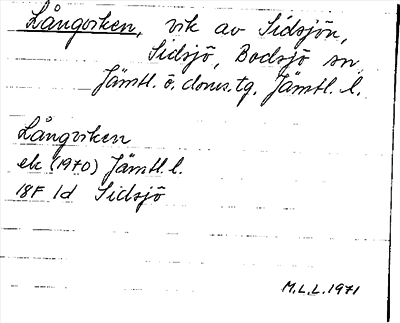 Långviken, vik av Sidsjön,
Sidsjö, Bodsjö sn,
Jämtl. ö. doms.tg. Jämtl. l.
Långviken
ek (1970) Jämtl. l.
18F 1d Sidsjö
M.L.L. 1971